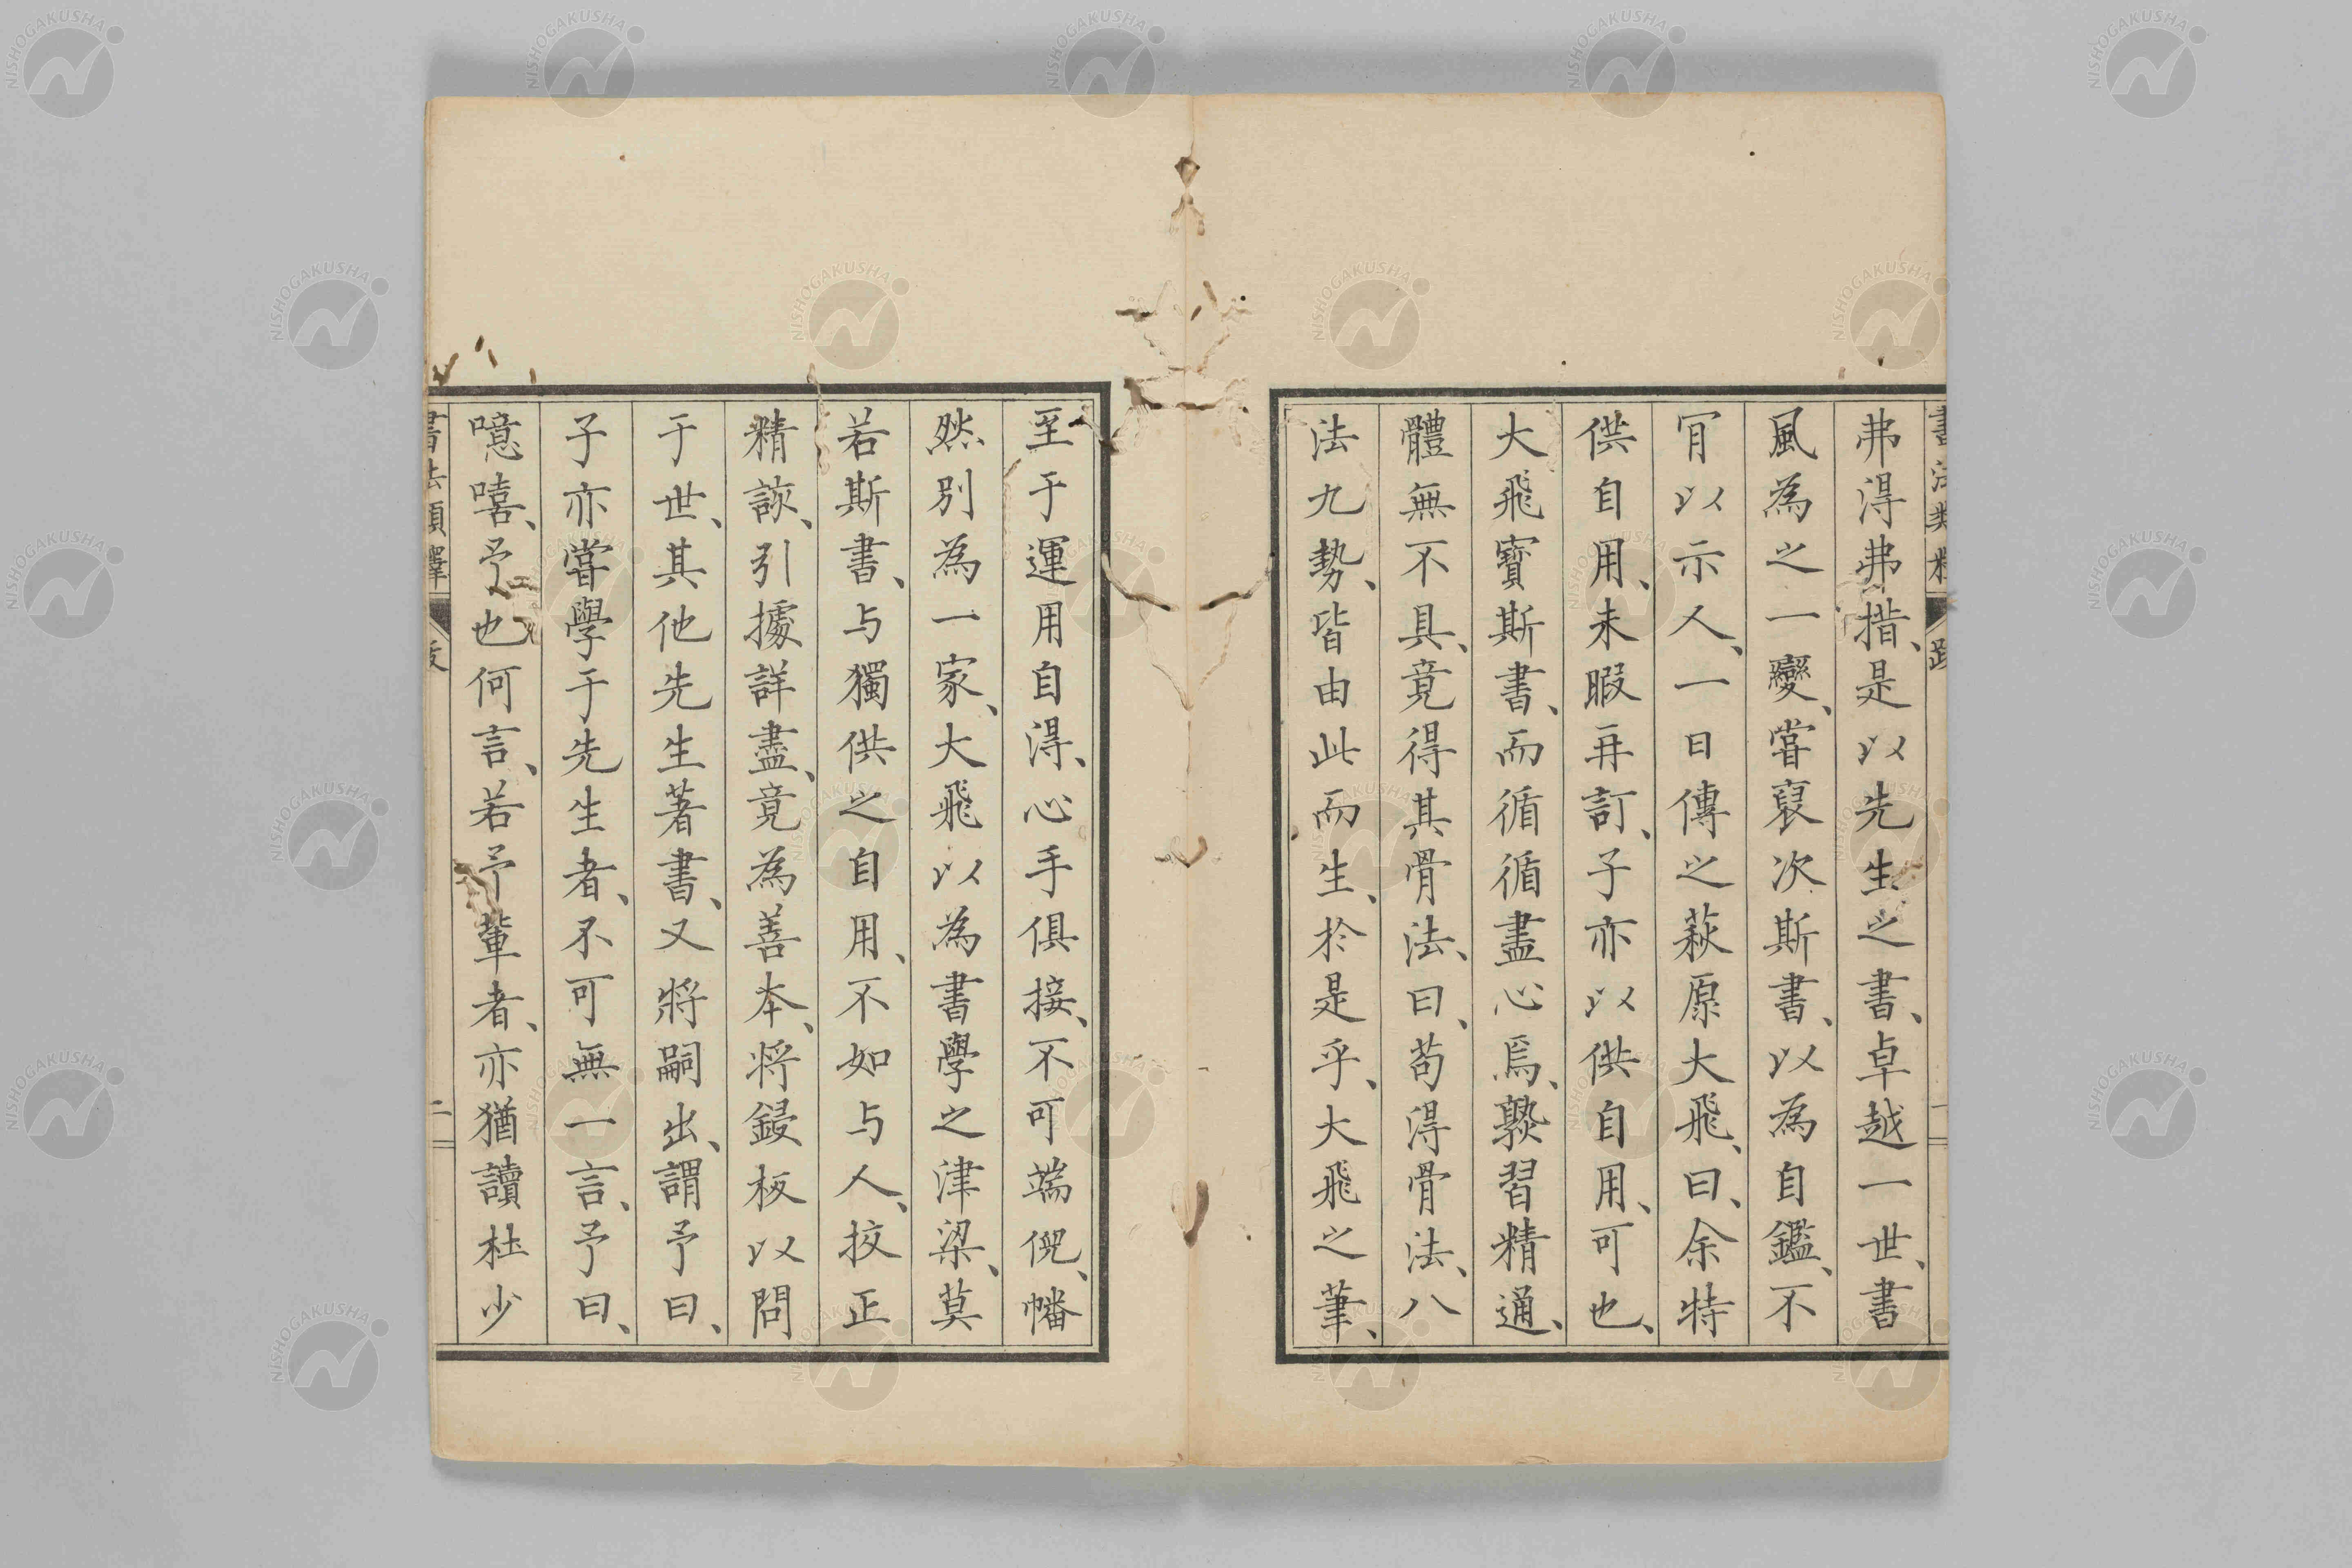 弗得弗措、是以先生之書、卓越一世、書
風為之一變、嘗裒次斯書、以為自鑑、不
肎以示人、一日傳之萩原大飛、曰、余特
供自用、未暇再訂、子亦以供自用、可也、
大飛寶斯書、而循循盡心焉、孰習精通、
體無不具、竟得其骨法、曰、苟得骨法、八
法九勢、皆由此而生、於是乎、大飛之筆、
至于運用自得、心手俱接、不可端倪、幡
然別為一家、大飛以為書學之津梁、莫
若斯書、与獨供之自用、不如与人、挍正
精諔、引據詳盡、竟為善本、将鋟板以問
于世、其他先生著書、又將嗣出、謂予曰、
子亦嘗學于先生者、不可無一言、予曰、
噫嘻、予也何言、若予輩者、亦猶讀杜少
書法類釋 跋 二
NISHOGAKUSHA